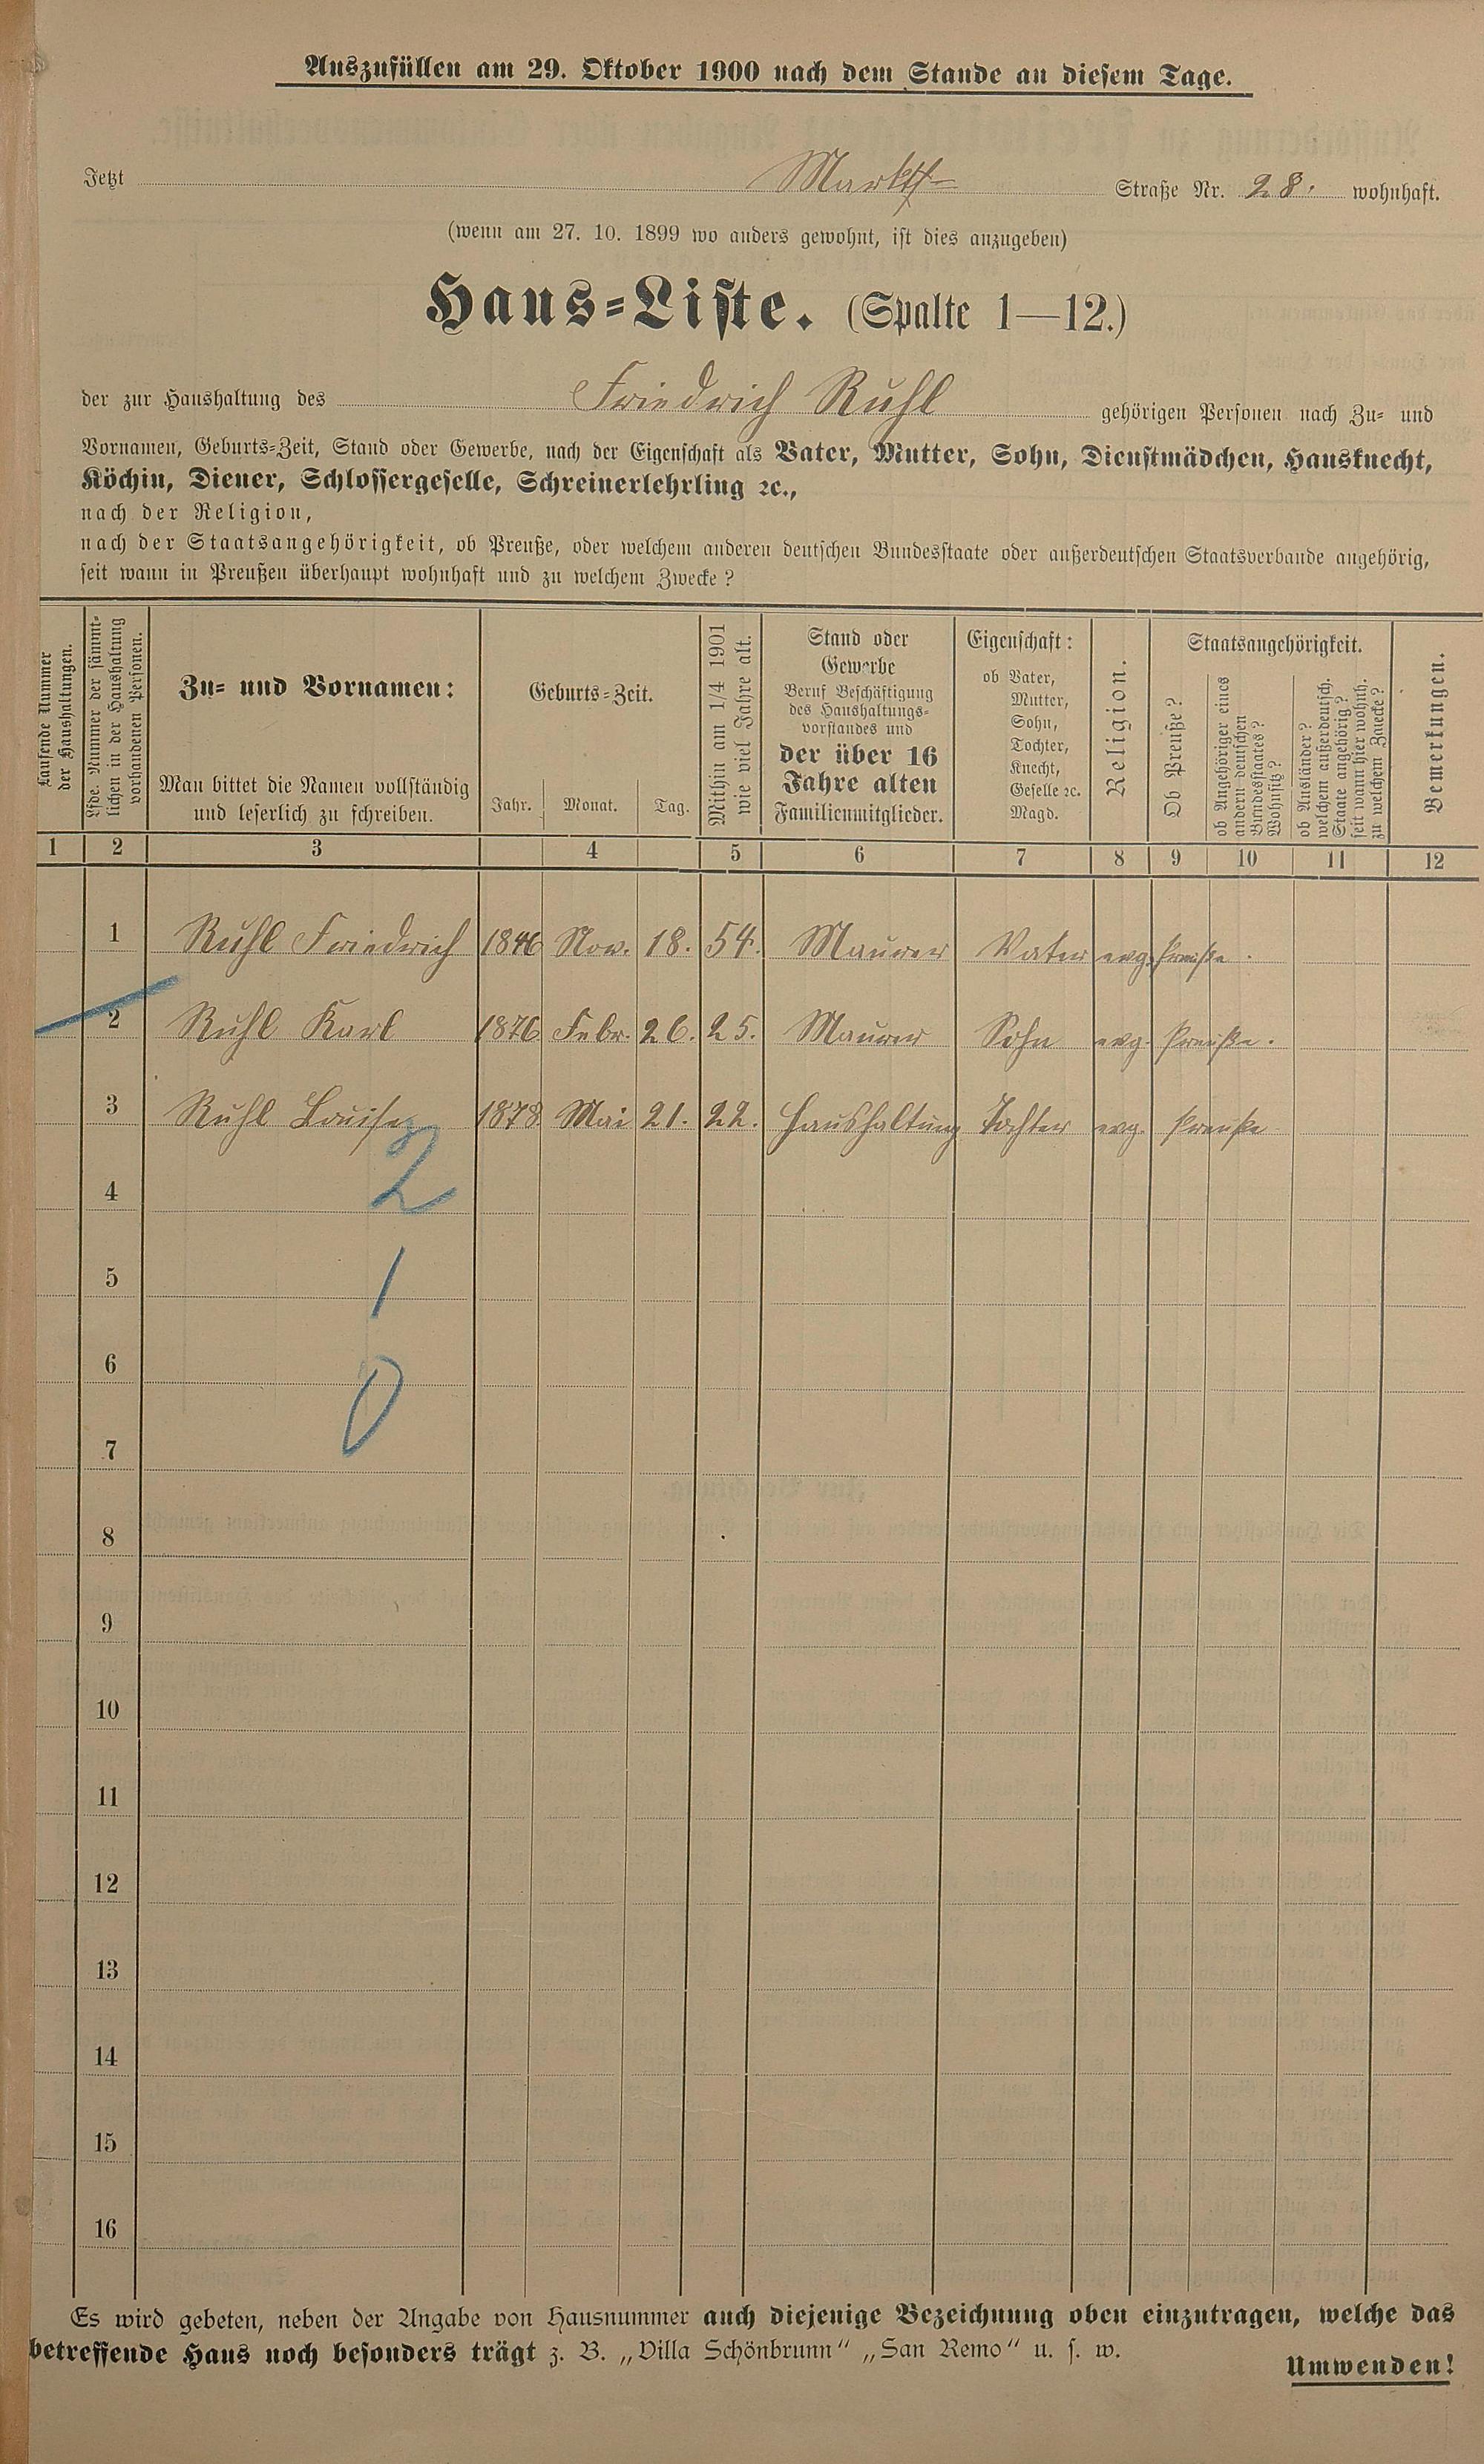 Auszufüllen am 29. Oktober 1900 nach dem Stande an diesem Tage.
Jetzt Markt- Straße Nr. 28. wohnhaft.
(wenn am 27. 10. 1899 wo anders gewohnt, ist dies anzugeben)
Haus-Liste. (Spalte 1—12.)
der zur Haushaltung des Friedrich Ruhl gehörigen Personen nach Zu- und
Vornamen, Geburts-Zeit, Stand oder Gewerbe, nach der Eigenschaft als Vater, Mutter, Sohn, Dienstmädchen, Hausknecht,
Köchin, Diener, Schlossergeselle, Schreinerlehrling ꝛc.,
nach der Religion,
nach der Staatsangehörigkeit, ob Preuße, oder welchem anderen deutschen Bundesstaate oder außerdeutschen Staatsverbande angehörig,
seit wann in Preußen überhaupt wohnhaft und zu welchem Zwecke?
Laufende Nummer
der Haushaltungen.
Lfde. Nummer der sämmt-
lichen in der Haushaltung
vorhandenen Personen.
Zu- und Vornamen:
Man bittet die Namen vollständig
und leserlich zu schreiben.
Geburts-Zeit.
Jahr. Monat. Tag.
Mithin am 1/4 1901
wie viel Jahre alt.
Stand oder
Gewerbe
Beruf Beschäftigung
des Haushaltungs-
vorstandes und
der über 16
Jahre alten
Familienmitglieder.
Eigenschaft:
ob Vater,
Mutter,
Sohn,
Tochter,
Knecht,
Geselle ꝛc.
Magd.
Religion.
Staatsangehörigkeit.
Ob Preuße?
ob Angehöriger eines
andern deutschen
Bundesstaates?
Wohnsitz?
ob Ausländer?
welchem außerdeutsch.
Staate angehörig?
seit wann hier wohnh.
zu welchem Zwecke?
Bemerkungen.
1 2 3 4 5 6 7 8 9 10 11 12
1 Ruhl Friedrich 1846 Nov. 18. 54. Maurer Vater evg. Preuße.
2 Ruhl Karl 1876 Febr. 26. 25. Maurer Sohn evg. Preuße.
3 Ruhl Louise 1878 Mai 21. 22. Haushaltung Tochter evg. Preuße
2
4
5 1
6 0
7
8
9
10
11
12
13
14
15
16
Es wird gebeten, neben der Angabe von Hausnummer auch diejenige Bezeichnung oben einzutragen, welche das
betreffende Haus noch besonders trägt z. B. „Villa Schönbrunn“ „San Remo“ u. s. w.
Umwenden!